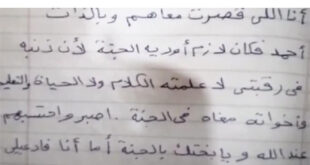 أنا اللى قصرت معاهم وبالذات
أحمد فكان لازم أوديه الجنة لأن ذنبه
فى رقبتى لا علمته الكلام ولا الحياة والتعليم
وأخواته معاه فى الجنة. اصبر واحتسبهم
عند الله ويابختك بالجنة أما أنا فادعيلى